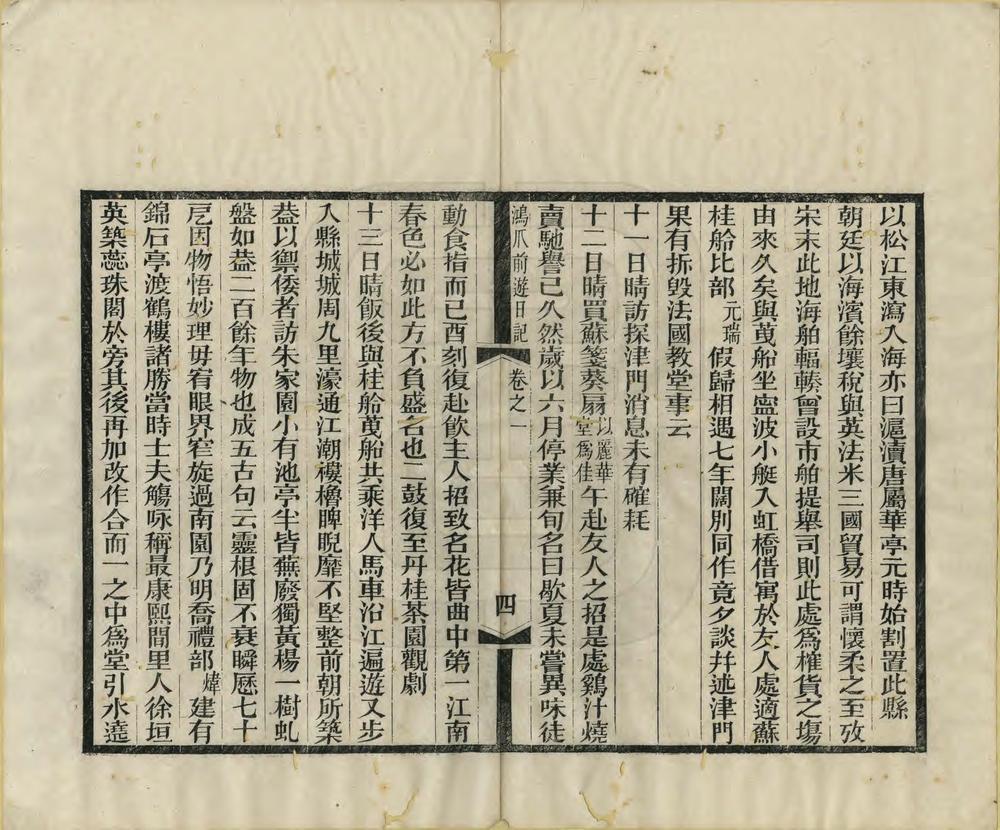 以松江東瀉入海亦曰滬瀆唐屬華亭元時始割置此縣
朝廷以海濱餘壤稅與英法米三國貿易可謂懷柔之至攷
宋末此地海舶輻輳曾設市舶提舉司則此處為榷貨之塲
由來久矣與萸船坐寍波小艇入虹橋借寓於友人處適蘇
桂船比部元瑞假歸相遇七年闊別同作竟夕談幷述津門
果有拆毀法國教堂事云
十一日晴訪探津門消息未有確耗
十二日晴買蘇箋葵扇以麗華堂為佳午赴友人之招是處鷄汁燒
賣馳譽已久然歲以六月停業兼旬名曰歇夏未嘗異味徒
鴻爪前遊日記 卷之一 四
動食指而已酉刻復赴飲主人招致名花皆曲中第一江南
春色必如此方不負盛名也二鼓復至丹桂茶園觀劇
十三日晴飯後與桂船萸船共乘洋人馬車沿江遍遊又步
入縣城城周九里濠通江潮樓櫓睥睨靡不堅整前朝所築
葢以禦倭者訪朱家園小有池亭半皆蕪廢獨黃楊一樹虬
盤如葢二百餘年物也成五古句云靈根固不衰瞬歷七十
戹因物悟妙理毋宥眼界窄旋過南園乃明喬禮部煒建有
錦石亭渡鶴樓諸勝當時士夫觴咏稱最康熙間里人徐垣
英築蕊珠閣於旁其後再加改作合而一之中為堂引水遶